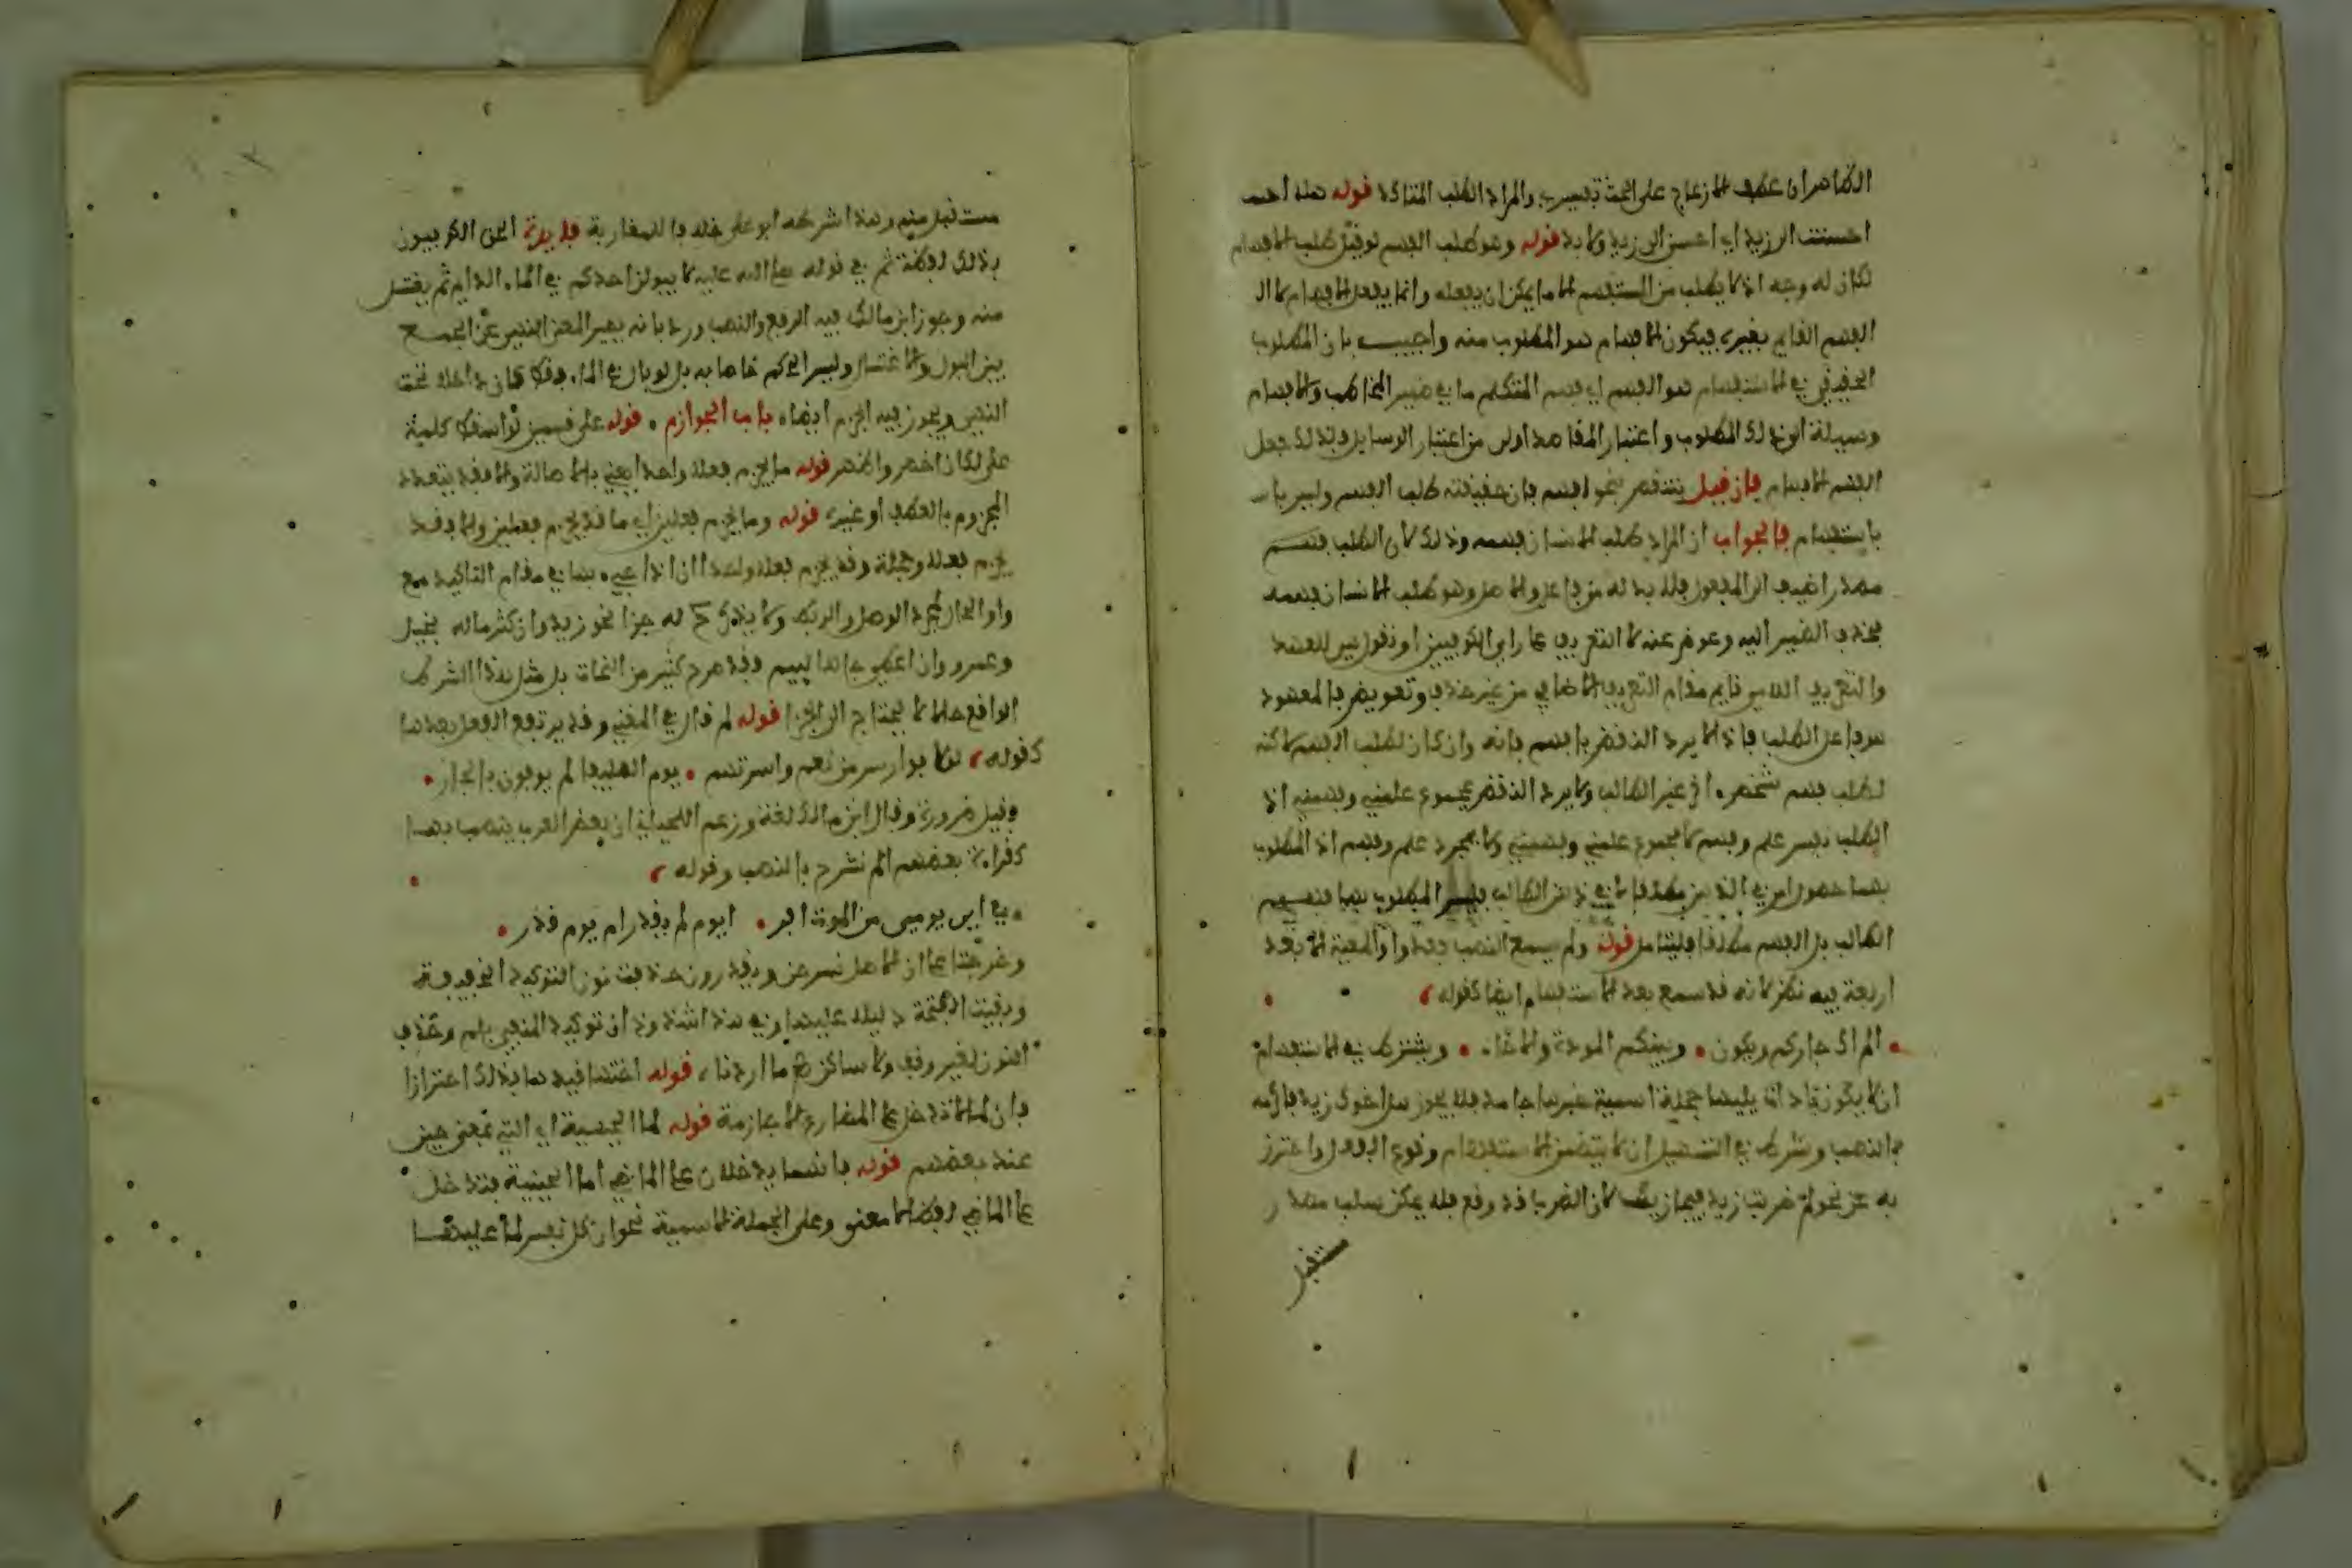 الظاهر ان عطف الازعاج على الحث تفسير والمراد الطلب المتأكد قوله
احسنت الى زيد اي احسن الى زيد ولابد قوله وهو طلب الفهم لو قيل طلب الافهام
لكان له وجه اذ لا يطلب من المستفهم الا ما يمكن ان يفعله وانما يفعل الافهام لا
الفهم القائم بغيره فيكون الافهام هو المطلوب منه واجيب بان المطلوب
الحقيقي في الاستفهام هو الفهم اي فهم المتكلم ما في ضمير المخاطب والافهام
وسيلة الى ذلك المطلوب واعتبار المقاصد اولى من اعتبار الوسايل ولذلك جعل
الفهم الافهام فان قيل ينتقض بنحو افهم فان حقيقته طلب الفهم وليس
باستفهام فالجواب ان المراد طلب الانسان فهمه وذلك لان الطلب
مصدر اضيف الى المفعول فلا بد له من فاعل والاصل وهو طلب الانسان فهمه
فحذف الضمير اليه وعوض عنه لا التعريف على راي الكوفيين او نقول
والتعريف اللامي قايم مقام التعريف الاضافي من غير حذف وتعويض فالمعهود
هو فاعل الطلب فاذ الا يرد النقض بافهم فانه وان كان لطلب الفهم لاكنه
لطلب فهم شخص اخر غير الطالب ولا يرد النقض بمجموع علمني وفهمني اذ
الطلب ليس علم وفهم لا مجموع علمني وفهمني ولا مجرد علم وفهم اذ المطلوب
بهما حصول امر في الذهن مطلقا لا في ذهن الطالب فليس المطلوب بهما فهم
الطالب بل الفهم مطلقا فليتامل قوله ولم يسمع النصب بعد واو المعية الا بعد
اربعة فيه نظر لانه قد سمع بعد الاستفهام ايضا كقوله
الم اك جاركم ويكون وبينكم المودة والاخاء ويشترط في الاستفهام
ان لا يكون باداة يليها جملة اسمية خبرها جامد فلا يجوز هل اخوك زيد فاكرمه
بالنصب وشرط في التسهيل ان لا يتضمن الاستفهام وقوع الفعل واحترز
به عن نحو لم ضربت زيدا فيجازيك لان الضرب قد وقع فلم يمكن سبك مصدر
مستقبل
مستقبل منه وهذا اشرطه ابو علي خلافا للمغاربة فايدة الحق الكوفيون
بذلك لفظة ثم في قوله صلى الله عليه لا يبولن احدكم في الماء الدايم ثم يغتسل
منه وجوز ابن مالك فيه الرفع والنصب ورد بانه يصير المعنى النهي عن الجمع
بين البول والاغتسال وليس الحكم خاصا به بل لو بال في الماء فقط كان داخلا تحت
النهي ويجوز فيه الجزم ايضا باب الجوازم قوله على قسمين لو اسقط كلمة
على لكان اخصر واظهر قوله ما يجزم فعلا واحدا يعني بالاصالة والا فقد يتعدد
المجزوم بالعطف او غيره قوله وما يجزم فعلين اي ما قد يجزم فعلين والا فقد
يجزم فعلا وجملة وقد يجزم فعلا واحدا ان اذا جيء بها في مقام التاكيد مع
واو الحال لمجرد الوصل والربط ولا يذكر ح له جزا نحو زيد وان كثر ماله بخيل
وعمرو وان اعطي جاها لييم وقد صرح كثير من النحاة بل مثل هذا الشرط
الواقع حالا لا يحتاج الى الجزا قوله لم قال في المغني وقد يرتفع الفعل بعدها
كقوله لولا فوارس من نعم واسرتهم يوم الصليفا لم يوفون بالجار
وقيل ضرورة وقال ابن مالك لغة وزعم اللحياني ان بعض العرب ينصب بها
كقراءة بعضهم الم نشرح بالنصب وقوله
في اي يومي من الموت افر ايوم لم يقدر ام يوم قدر
وخرجتا على ان الاصل نشرحن ويقدرن حذفت نون التوكيد الخفيفة
وبقيت الفتحة دليلا عليها وفي هذا شذوذان توكيد المنفي بلم وحذف
النون لغير وقف ولا ساكن ما اردنا قوله اختها قيدها بذلك احترازا
فان لما لا تدخل على المضارع الا جازمة قوله لما الحينية اي التي بمعنى حين
عند بعضهم قوله فانهما يدخلان على الماضي اما الحينية فتدخل
على الماضي لفظا لا معنى وعلى الجملة الاسمية نحو ان كل نفس لما عليها